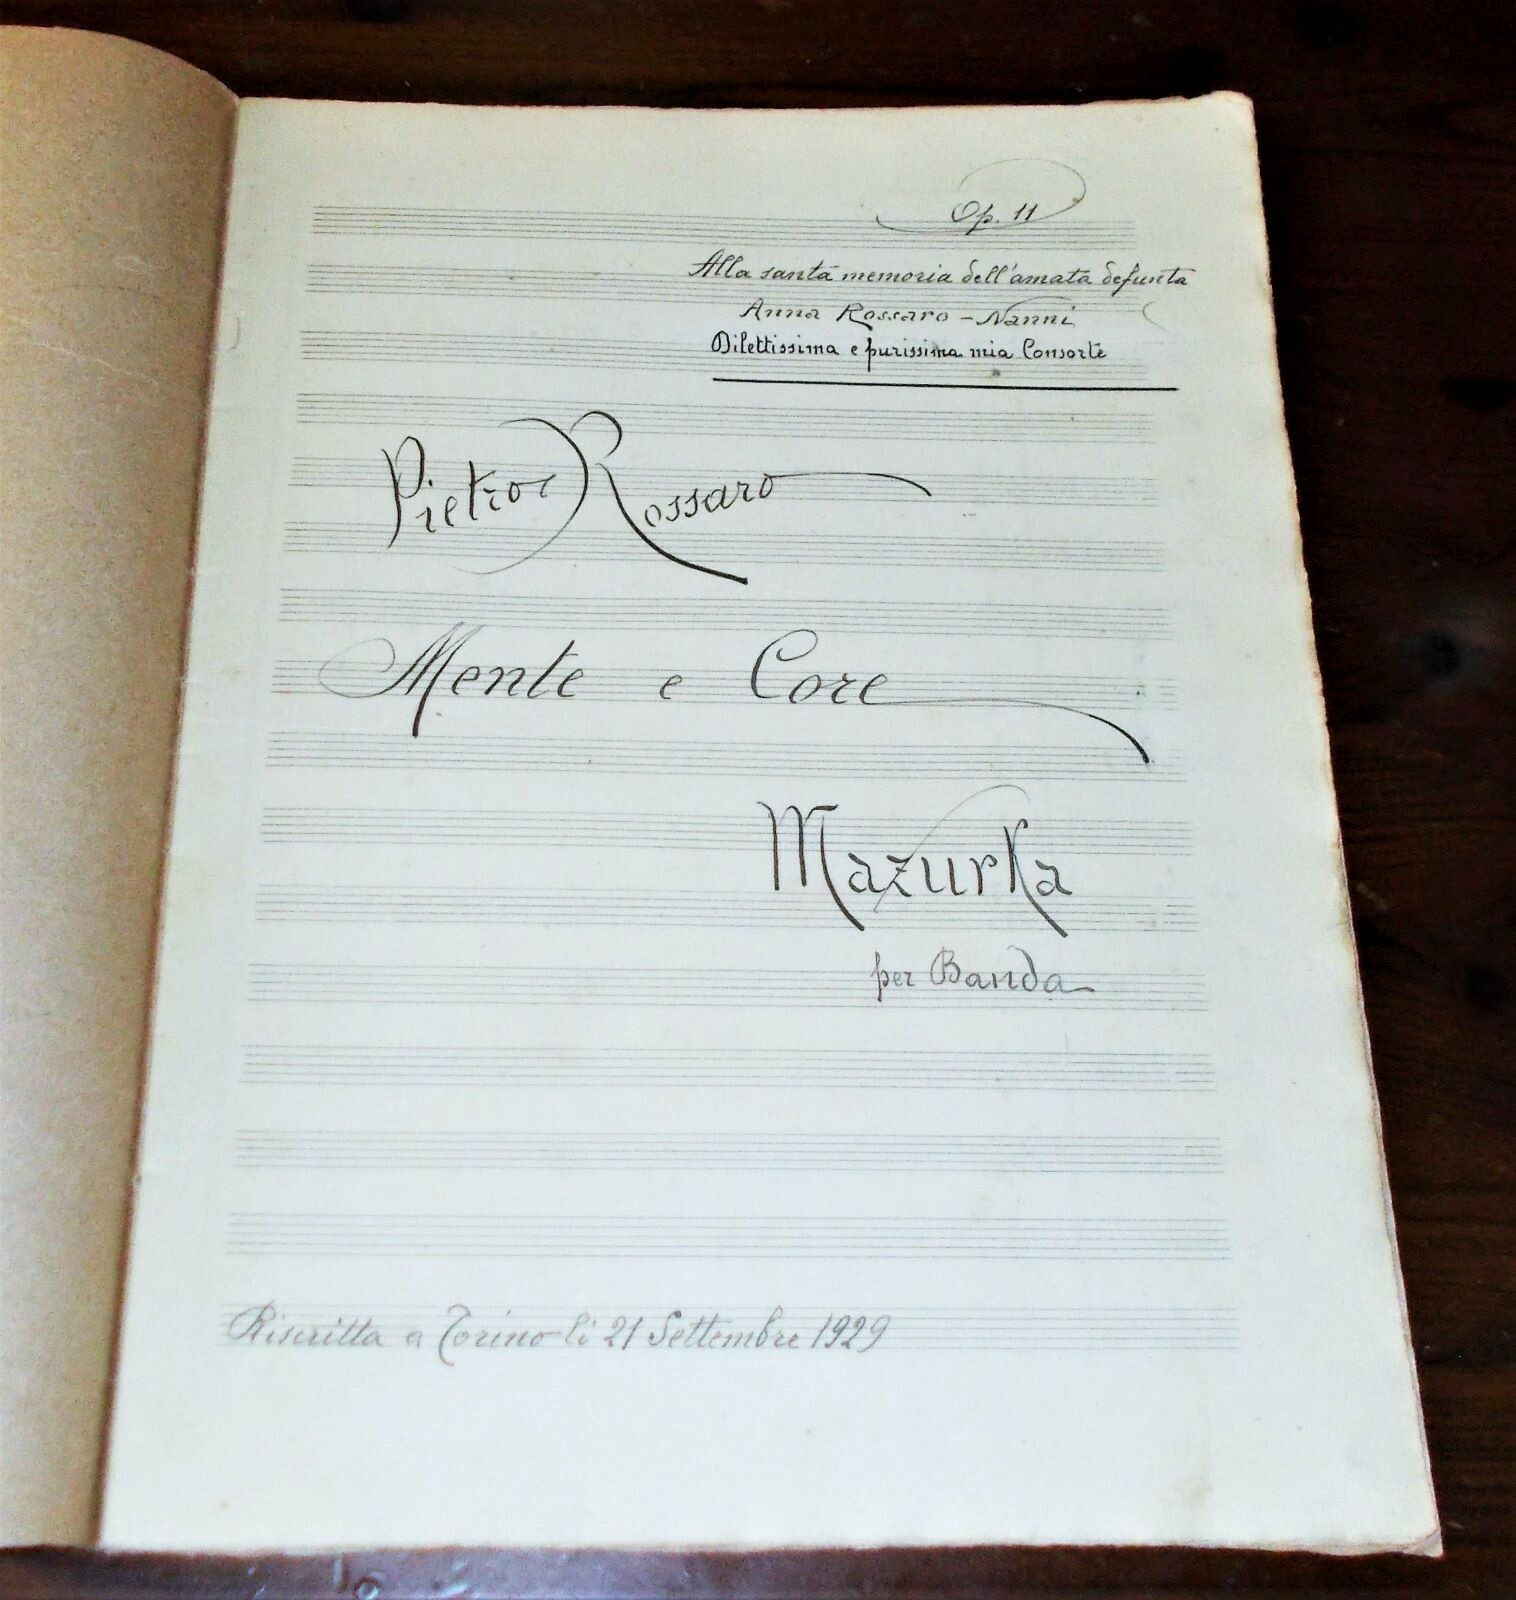 Op. 11
Alla santa memoria dell'amata defunta
Anna Rossaro - Nanni
Dilettissima e purissima mia Consorte
Pietro Rossaro
Mente e Core
Mazurka
per Banda
Riscritta a Torino li 21 Settembre 1929